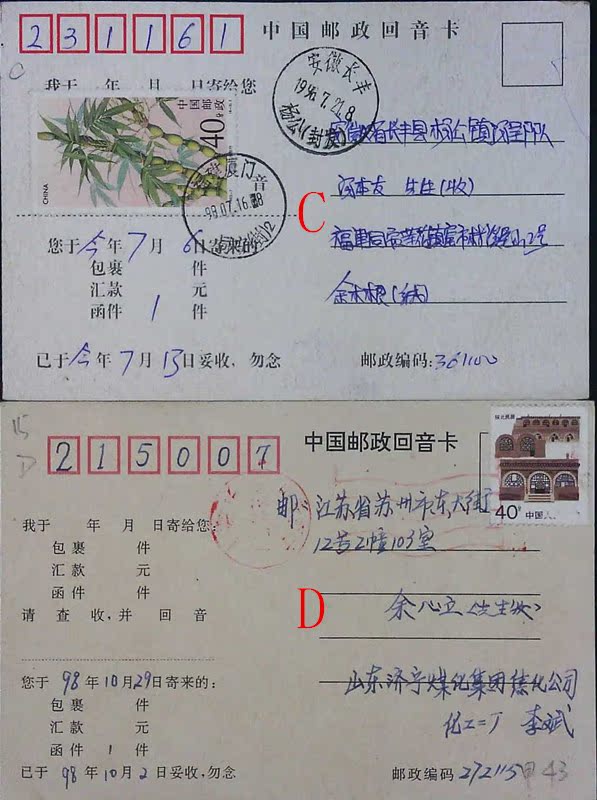 231161
中国邮政回音卡
我于 年 月 日寄给您
中国邮政
40分
CHINA
安徽长丰
1996.7.21.8
杨公(封发)
厦门
98.07.16.
安徽省长丰县杨公镇
先生(收)
C
您于今年7月6日寄来的
包裹 件
汇款 元
函件 1 件
2号
已于今年7月13日妥收,勿念
邮政编码:361100
15
D
215007
中国邮政回音卡
40分
中国人
我于 年 月 日寄给您:
包裹 件
汇款 元
函件 件
请查收,并回音
邮 江苏省苏州市东大街
12号2幢103室
D
余心立(先生收)
您于98年10月29日寄来的:
包裹 件
汇款 元
函件 1 件
已于98年10月2日妥收,勿念
山东济宁煤化集团焦化公司
化工二厂 李斌
邮政编码 272115
43